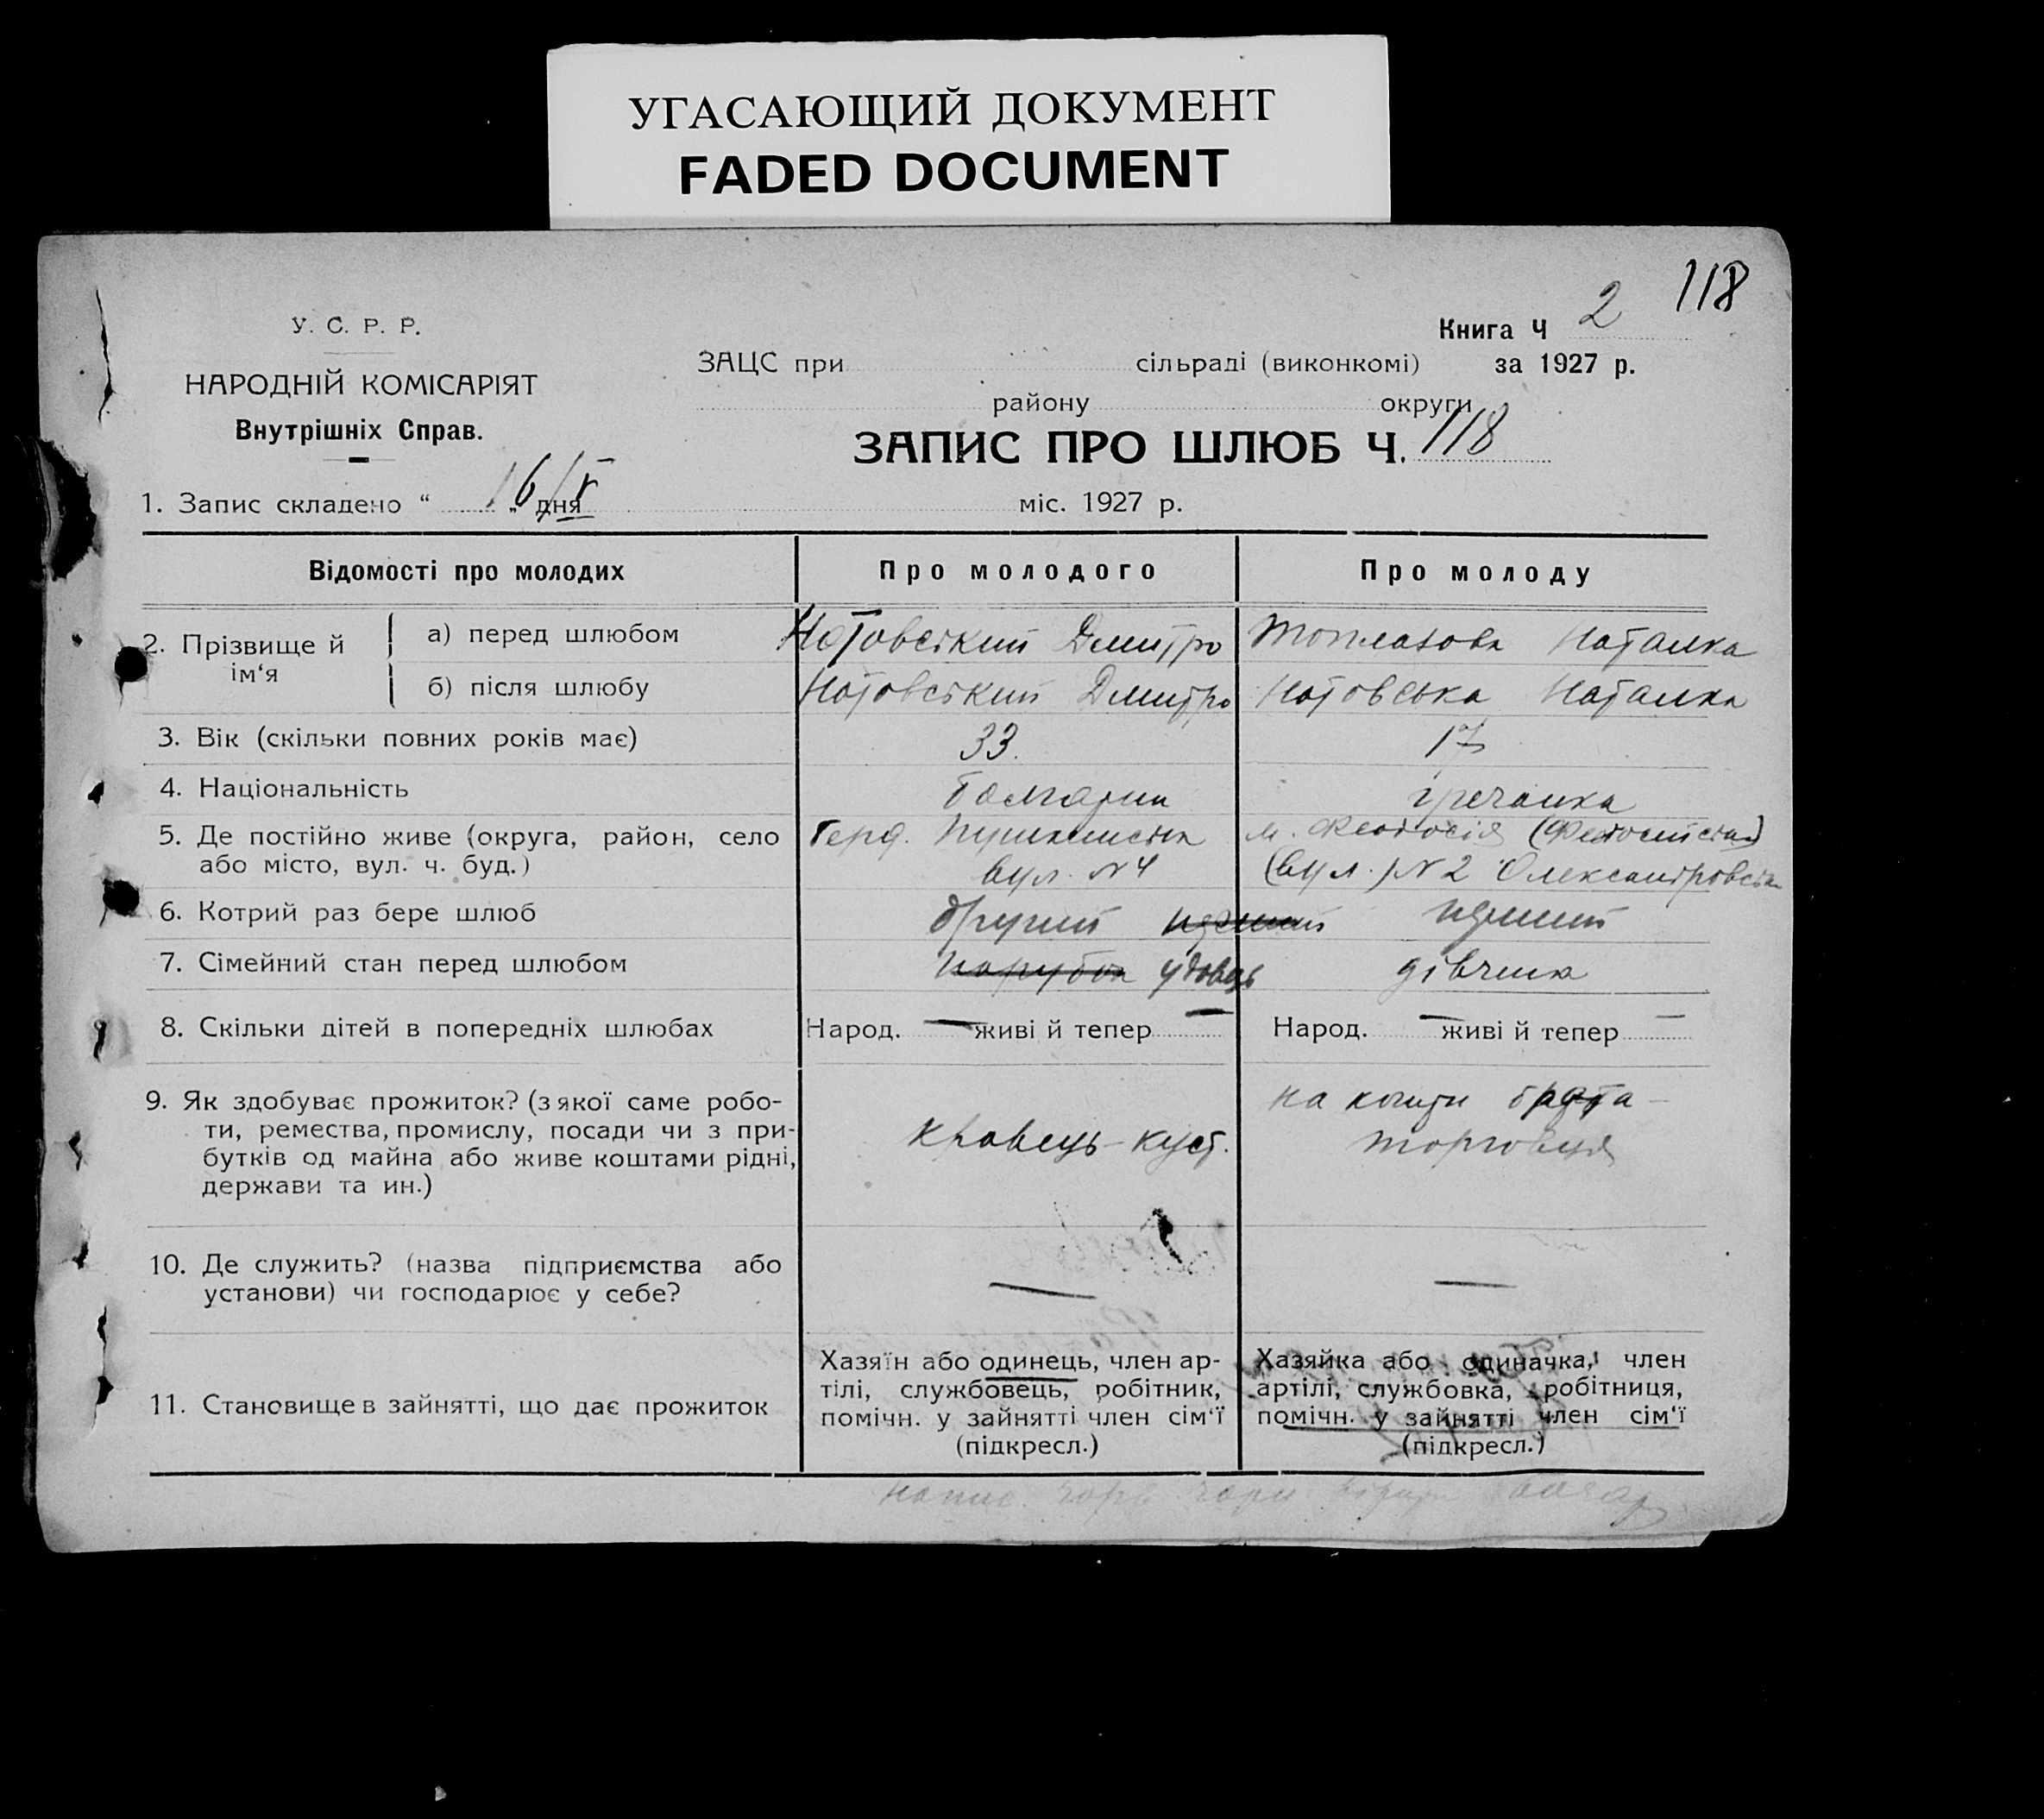 УГАСАЮЩИЙ ДОКУМЕНТ
FADED DOCUMENT
118
У. С. Р. Р.
НАРОДНІЙ КОМІСАРІЯТ
Внутрішніх Справ.
Книга Ч 2
ЗАЦС при сільраді (виконкомі) за 1927 р.
району округи
ЗАПИС ПРО ШЛЮБ Ч. 118
1. Запис складено “ 16/V „ дня міс. 1927 р.
Відомості про молодих Про молодого Про молоду
2. Прізвище й ім‘я
а) перед шлюбом Нотовський Дмитро Наталка
б) після шлюбу Нотовський Дмитро Нотовська Наталка
3. Вік (скільки повних років має) 33. 17
4. Національність болгарин гречанка
5. Де постійно живе (округа, район, село Пушкинська м. Феодосія
або місто, вул. ч. буд.) вул. № 4 (вул.) № 2 Олександровська
6. Котрий раз бере шлюб другий перший перший
7. Сімейний стан перед шлюбом парубок удовець дівчина
8. Скільки дітей в попередніх шлюбах Народ. — живі й тепер — Народ. — живі й тепер —
9. Як здобуває прожиток? (з якої саме робо-
ти, ремества, промислу, посади чи з при-
бутків од майна або живе коштами рідні,
держави та ин.)
кравець - куст.
на кошти брата -
торговця
10. Де служить? (назва підприємства або
установи) чи господарює у себе?
— —
11. Становище в зайнятті, що дає прожиток
Хазяїн або одинець, член ар-
тілі, службовець, робітник,
помічн. у зайнятті член сім‘ї
(підкресл.)
Хазяйка або одиначка, член
артілі, службовка, робітниця,
помічн. у зайнятті член сім‘ї
(підкресл.)